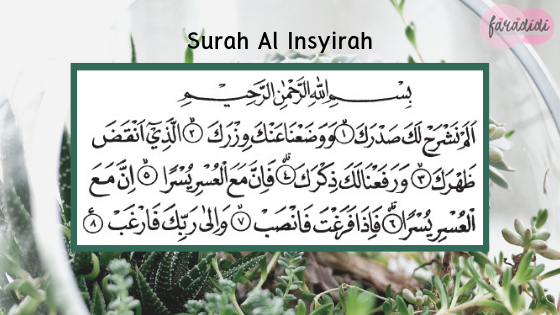 faradidi
Surah Al Insyirah
بِسْمِ اللهِ الرَّحْمٰنِ الرَّحِيْمِ
اَلَمْ نَشْرَحْ لَكَ صَدْرَكَ ۝١ وَوَضَعْنَا عَنْكَ وِزْرَكَ ۝٢ الَّذِيْٓ اَنْقَضَ
ظَهْرَكَ ۝٣ وَرَفَعْنَا لَكَ ذِكْرَكَ ۝٤ فَاِنَّ مَعَ الْعُسْرِ يُسْرًا ۝٥ اِنَّ مَعَ
الْعُسْرِ يُسْرًا ۝٦ فَاِذَا فَرَغْتَ فَانْصَبْ ۝٧ وَاِلٰى رَبِّكَ فَارْغَبْ ۝٨